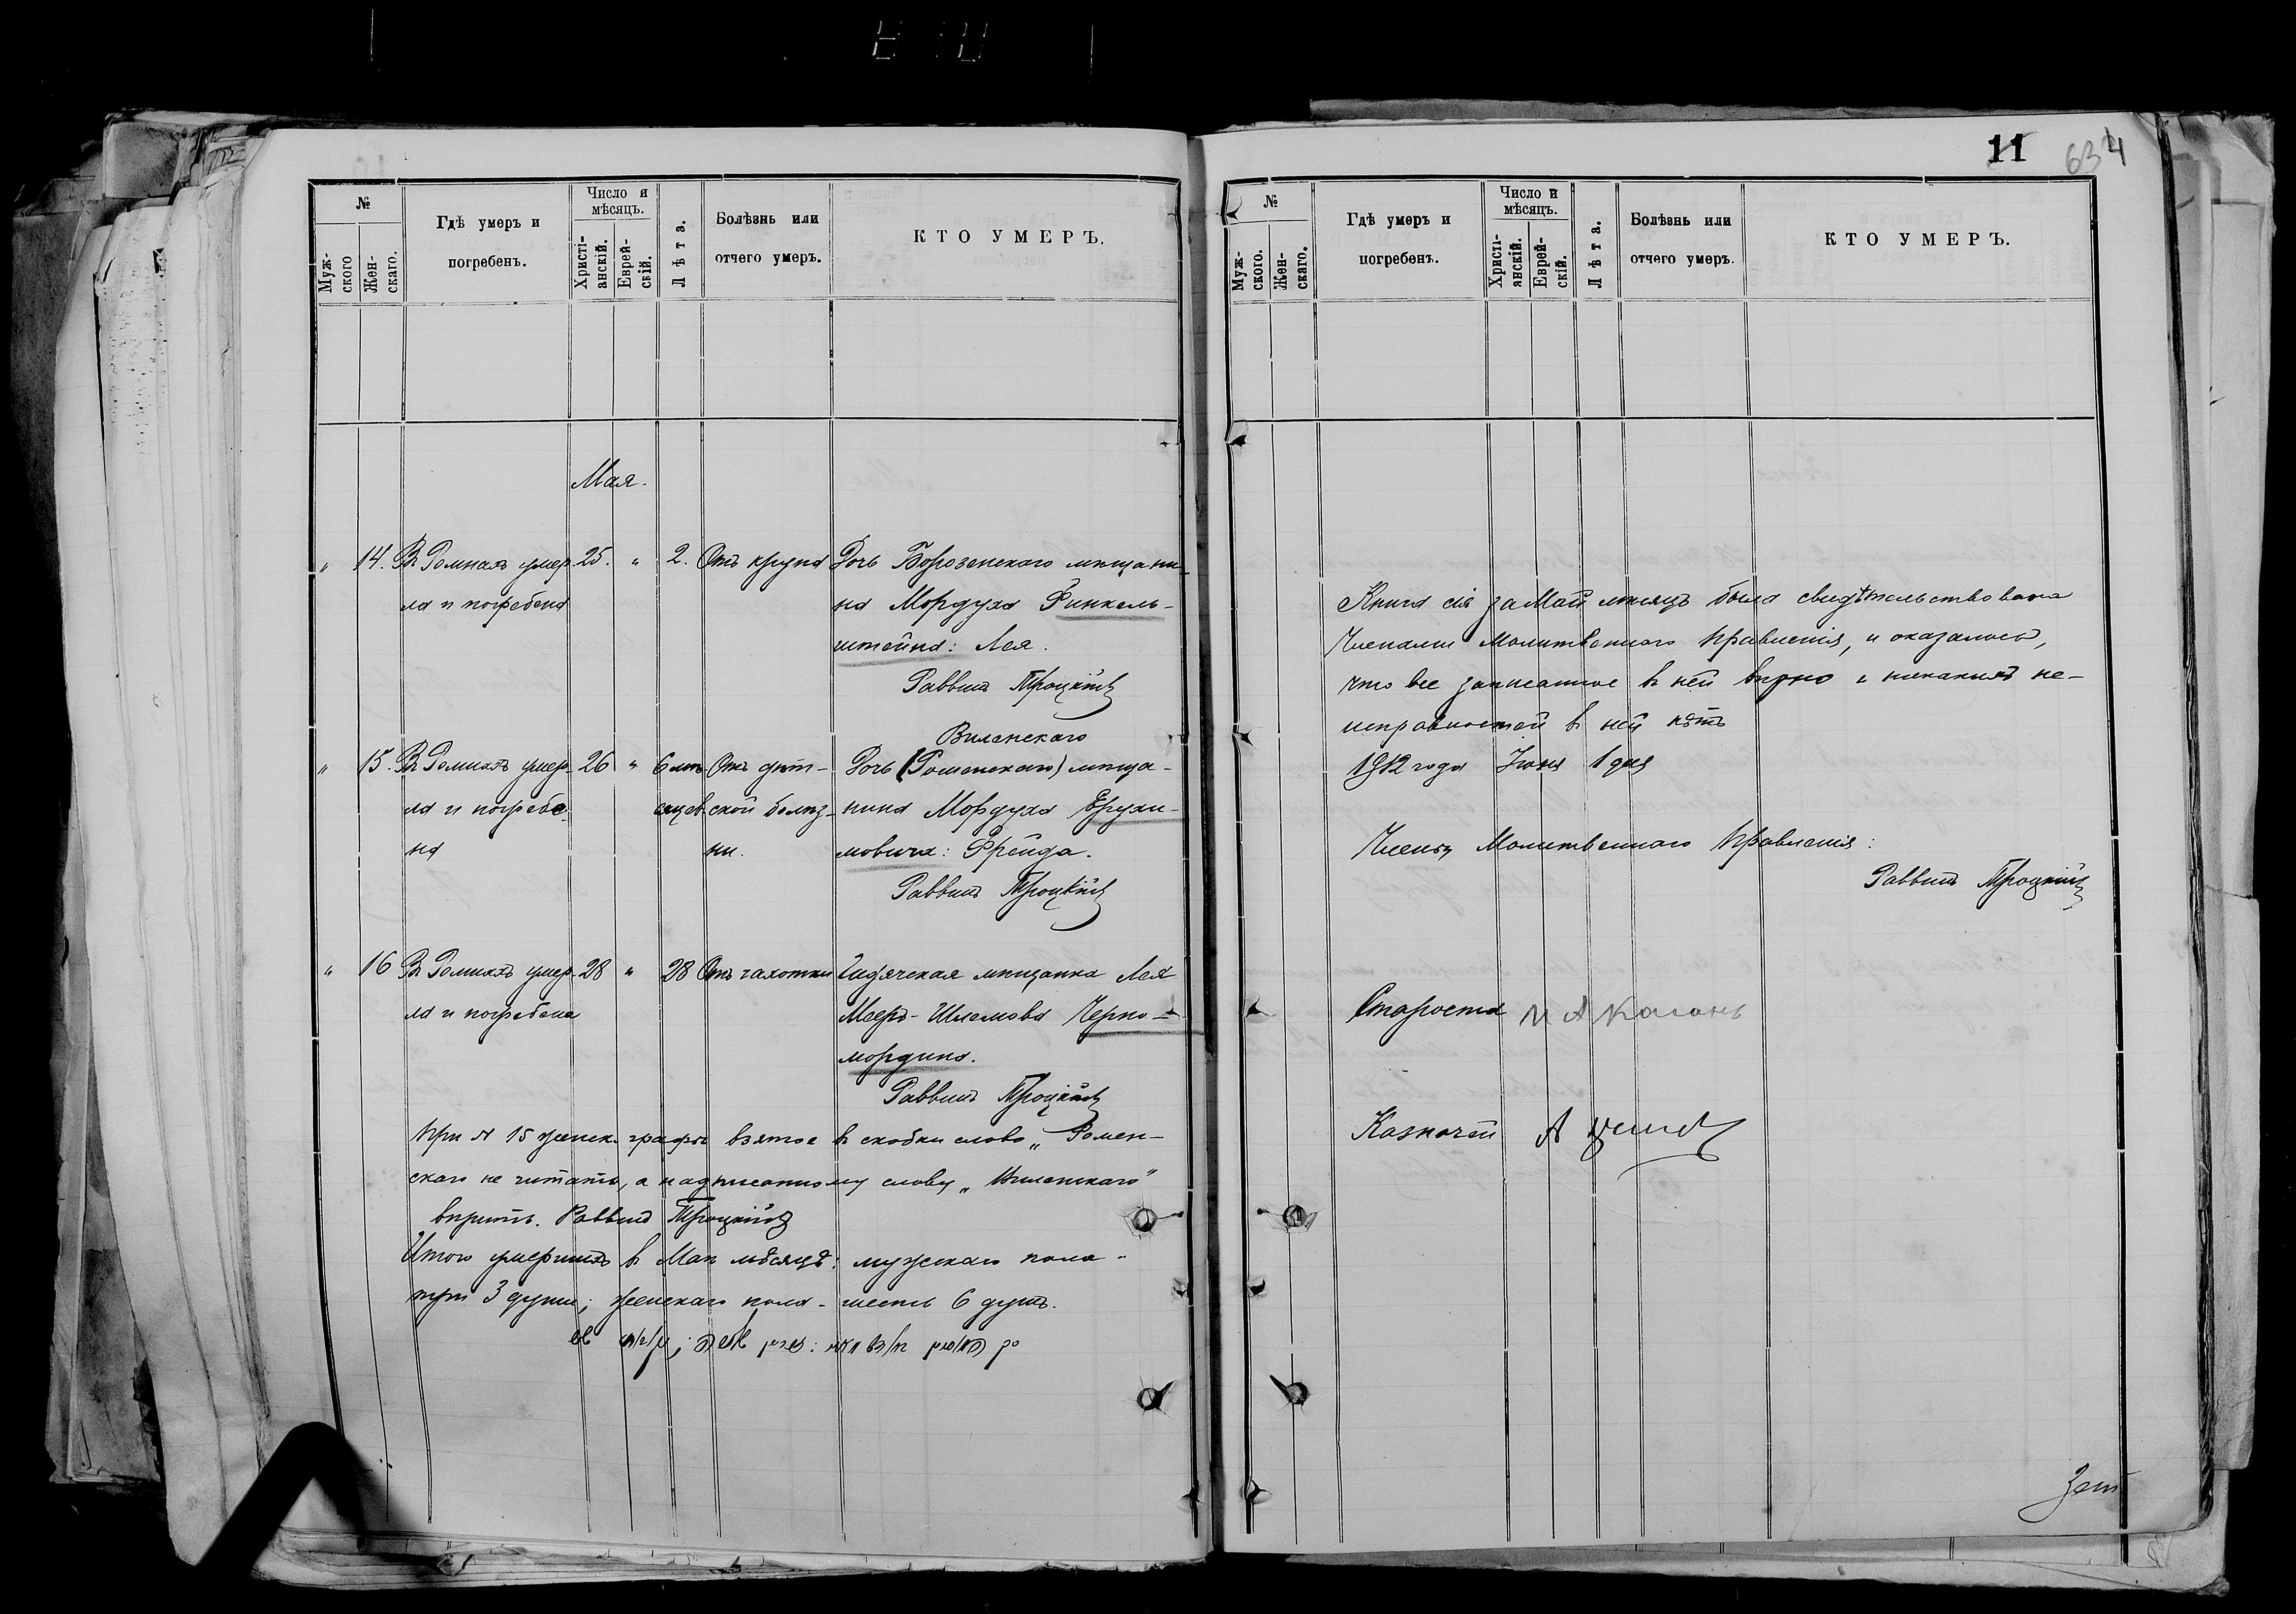 11 634
№
Муж-
ского
Жен-
скаго.
Гдѣ умеръ и
погребенъ.
Число и
мѣсяцъ.
Христі-
анскій.
Еврей-
скій.
Лѣта.
Болѣзнь или
отчего умеръ.
КТО УМЕРЪ.
Мая.
„ 14. Въ Ромнахъ умер- 25. „ 2. Отъ крупа Дочь Борозенскаго мѣщани-
ла и погребена на Мордуха Финкель-
штейна: Лея.
Раввинъ Троцкій
Виленскаго
„ 15. Въ Ромнахъ умер- 26 „ 6 мѣ- Отъ дѣт- Дочь (Роменскаго) мѣща-
ла и погребе- сяцев. ской болѣз- нина Мордуха Ерухи-
на ни. мовича: Фрейда.
Раввинъ Троцкій
„ 16 Въ Ромнахъ умер- 28 „ 28 Отъ чахотки Гадячская мѣщанка Лея
ла и погребена Мееръ-Шлемова Черно-
мордина.
Раввинъ Троцкій
При № 15 женск. графы взятое въ скобки слово „Ромен-
скаго не читать, а надписанному слову „Виленскаго"
вѣрить. Раввинъ Троцкій
Итого умершихъ въ Маѣ мѣсяцѣ: мужскаго пола -
три 3 души; женскаго пола - шесть 6 душъ.
№
Муж-
ского.
Жен-
скаго.
Гдѣ умеръ и
погребенъ.
Число и
мѣсяцъ.
Христі-
анскій.
Еврей-
скій.
Лѣта.
Болѣзнь или
отчего умеръ.
КТО УМЕРЪ.
Книга сія за Май мѣсяцъ была свидѣтельствована
Членами Молитвеннаго Правленія, и оказалось,
что все записанное въ ней вѣрно и никакихъ не-
исправностей въ ней нѣтъ
1912 года Іюня 1 дня
Члены Молитвеннаго Правленія:
Раввинъ Троцкій
Староста И А Каганъ
Казначей А